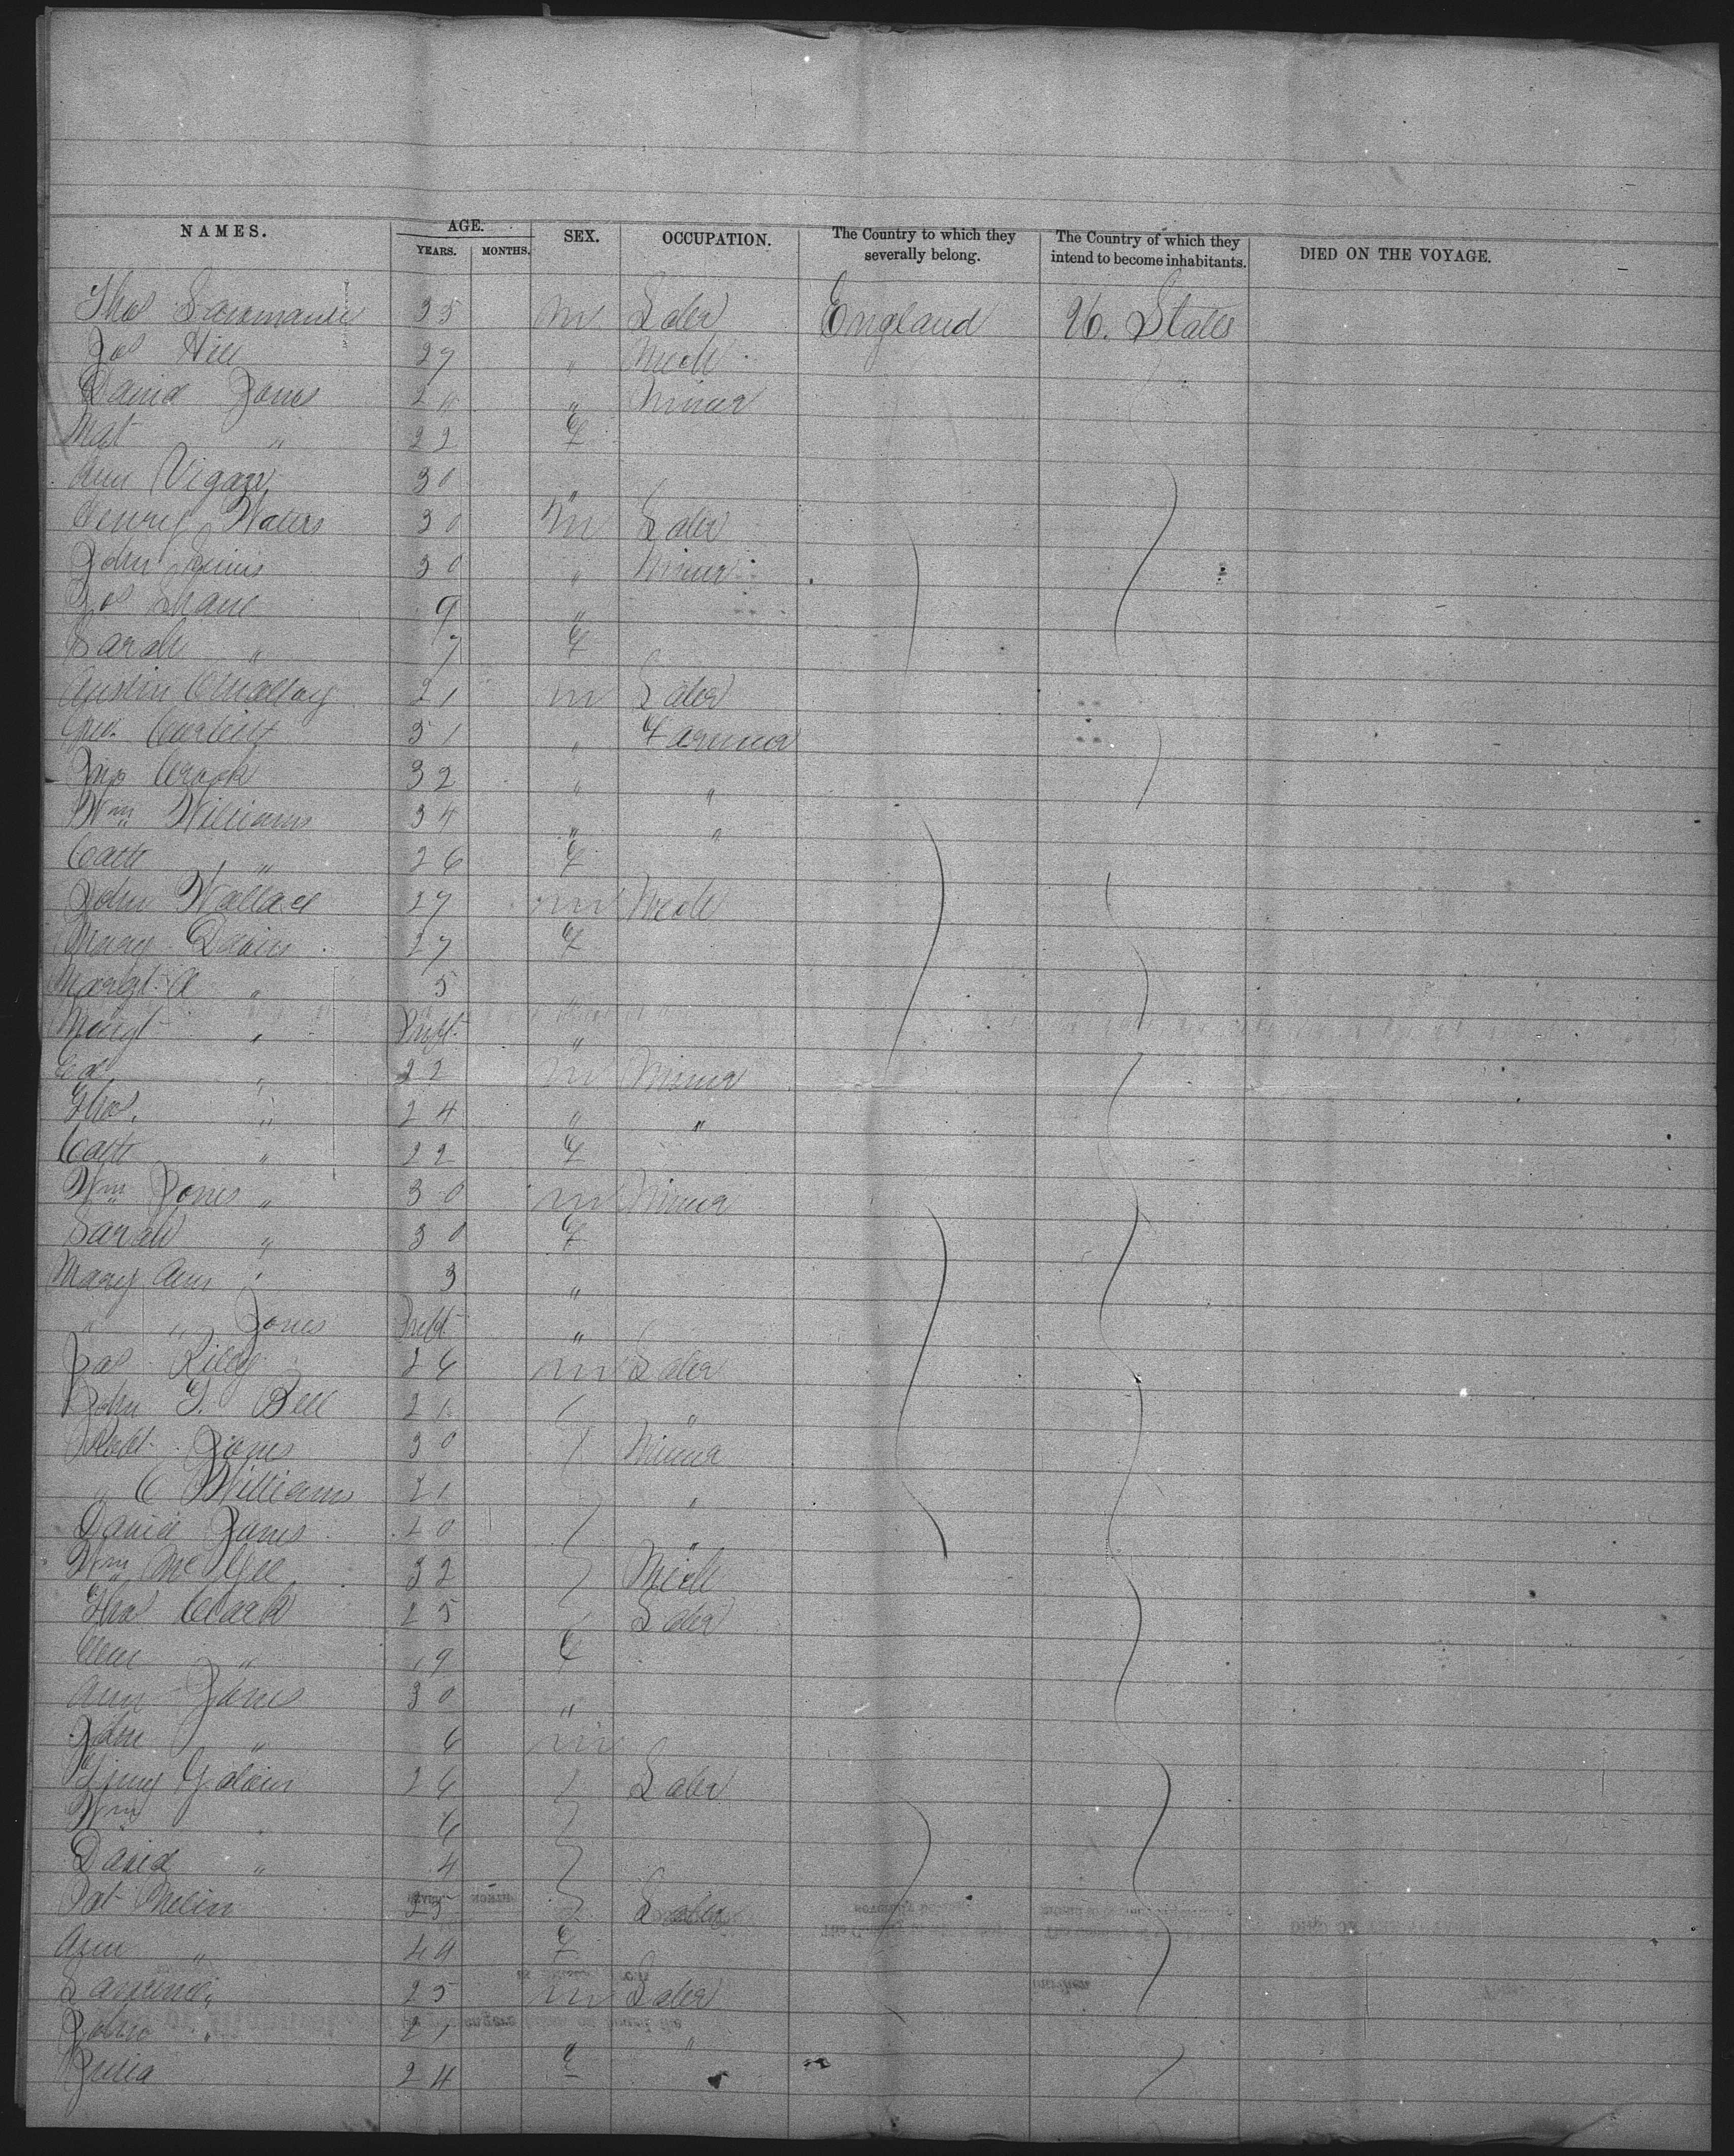 NAMES. AGE. YEARS. MONTHS. SEX. OCCUPATION. The Country to which they severally belong. The Country of which they intend to become inhabitants. DIED ON THE VOYAGE.
Thos 35 m Laber England U. States
Jos Hill 27 " Mech
David Jones 24 " Miner
Mat " 22 F
Ann 30 "
Henry Waters 30 m Laber
John 30 " Miner
Jos Shane 9 "
Sarah " 7 F
Austin OMallay 21 m Laber
Geo. " Farmer
Jno Crook 32 " "
Wm Williams 34 " "
Cath " 26 F
John Wallace 27 m Mech
Mary Davies 27 F
Margt A " 5 "
Margt " Inft "
Ed " 22 m Miner
Thos. " 24 " "
Cath " 22 F
Wm Jones " 30 m Miner
Sarah " 30 F
Mary Ann " 3 "
" " Jones Inft "
Jas Riley 26 m Laber
John T. Bell 21 "
Robt Jones 30 Miner
" C Williams 21 "
David James 20 "
Wm McGee 32 Mech
Thos Clark 25 Laber
" 19 F
Ann Jones 30 "
John " 6 m
26 Laber
Wm " 6
David " 4
Pat 55 Laber
Ann " 49 F
" 25 m Laber
John " 21 " "
Julia 24 F